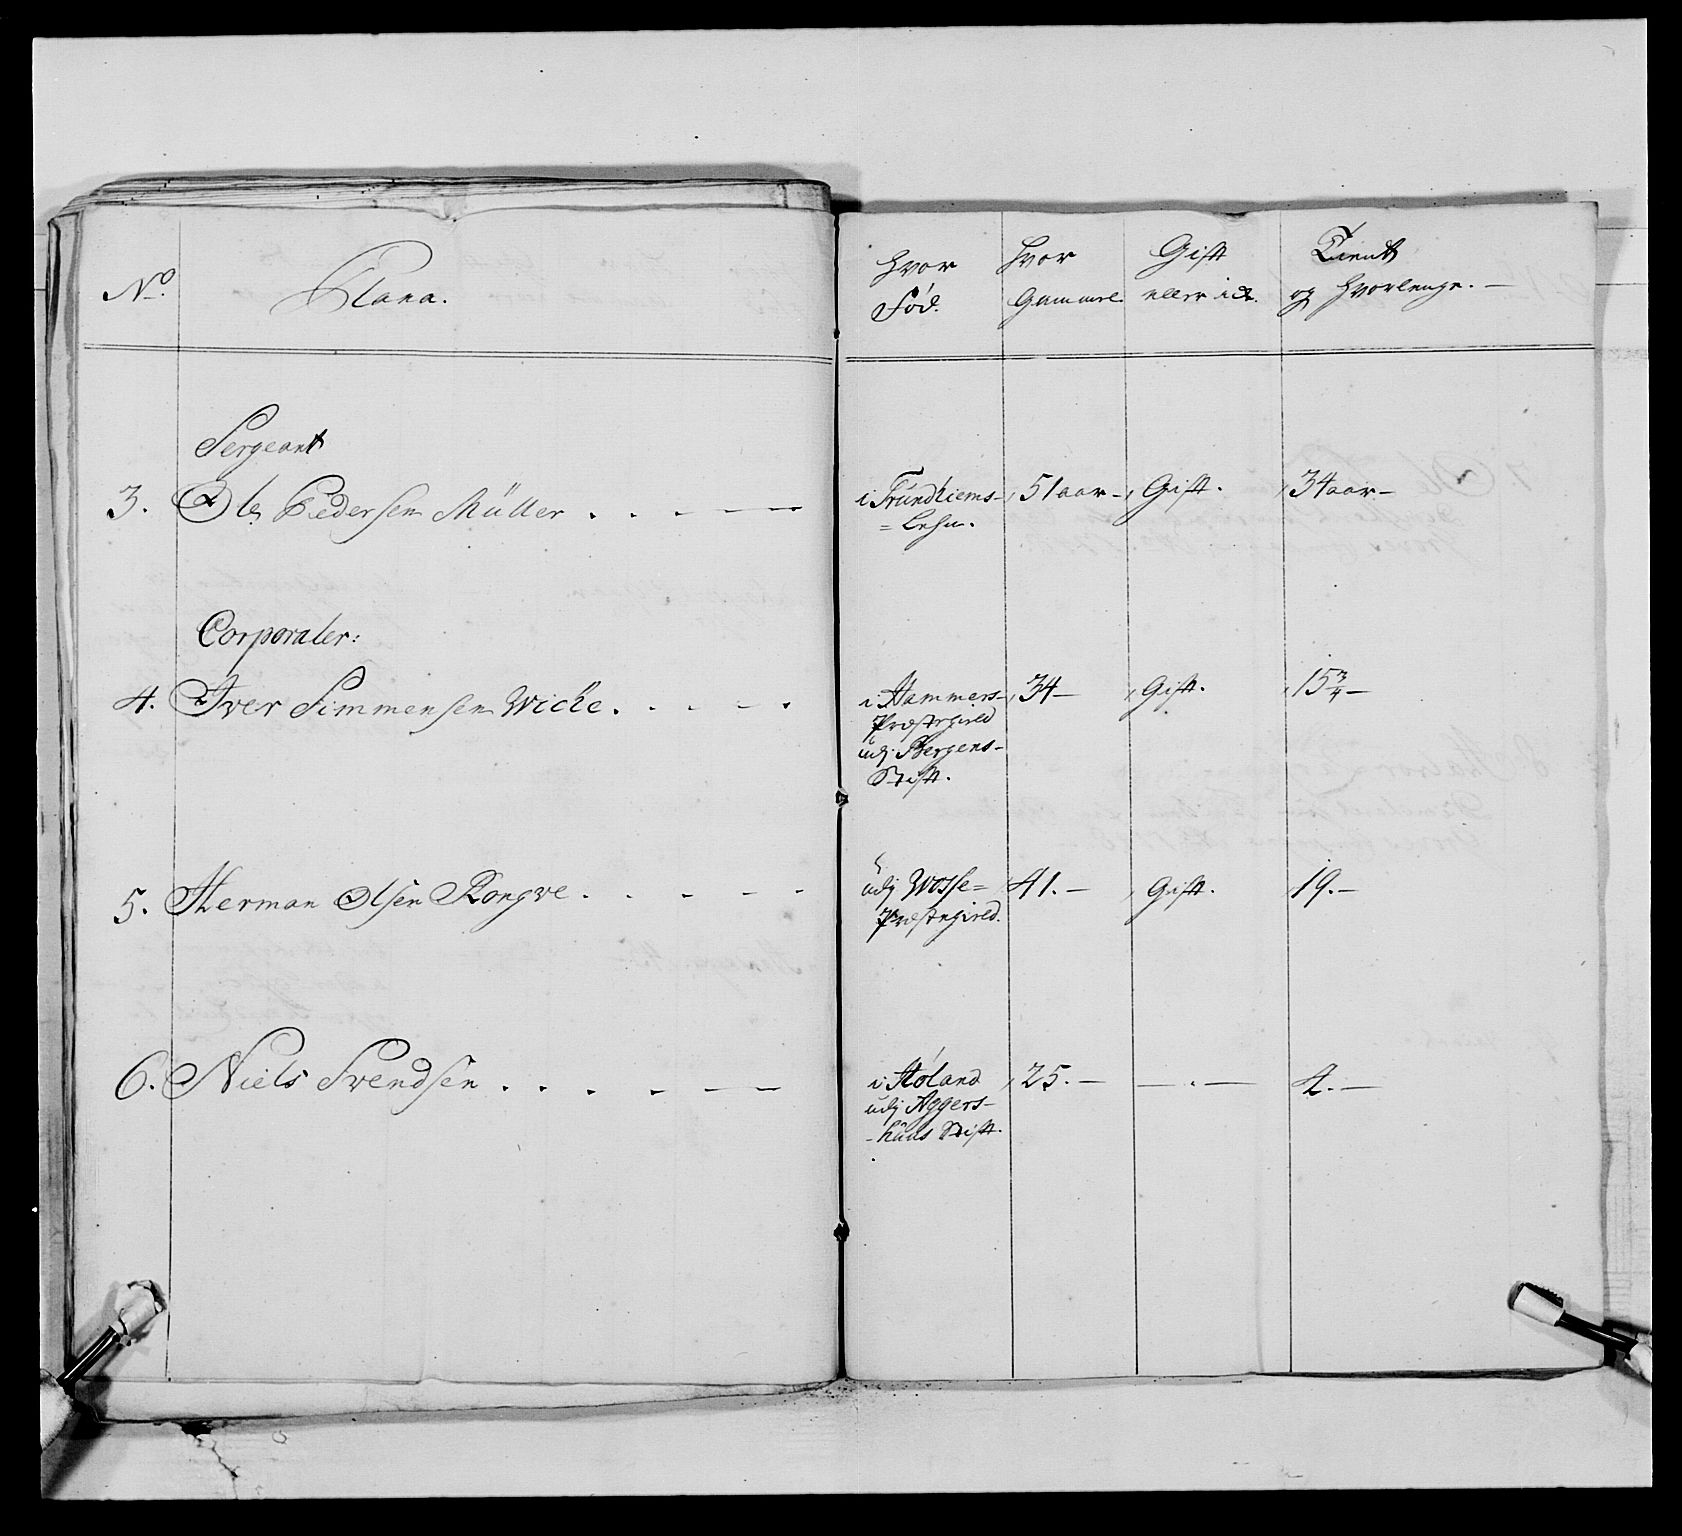 No. Plana. Hvor Fød. Hvor Gammel Gift eller ict. Tient og Hvorlenge. —
Sergeant
3. Ole Pedersen Müller . . . — — i Trundhiems- 51 aar — Gift. 34 aar —
= Lehn.
Corporaler:
4. Iver Simmensen Wicke . . . . i Hammers- 34 — Gift. 15 3/4 —
Præstegield
udj Bergens-
Stift.
5. Herman Olsen Rongve . . . . udj Wosse= 41. — Gift. 19. —
Præstegield.
6. Niels Svendsen . . . . — — i Høland 25. — — . — 4. —
udj Aggers-
-huus Stift.